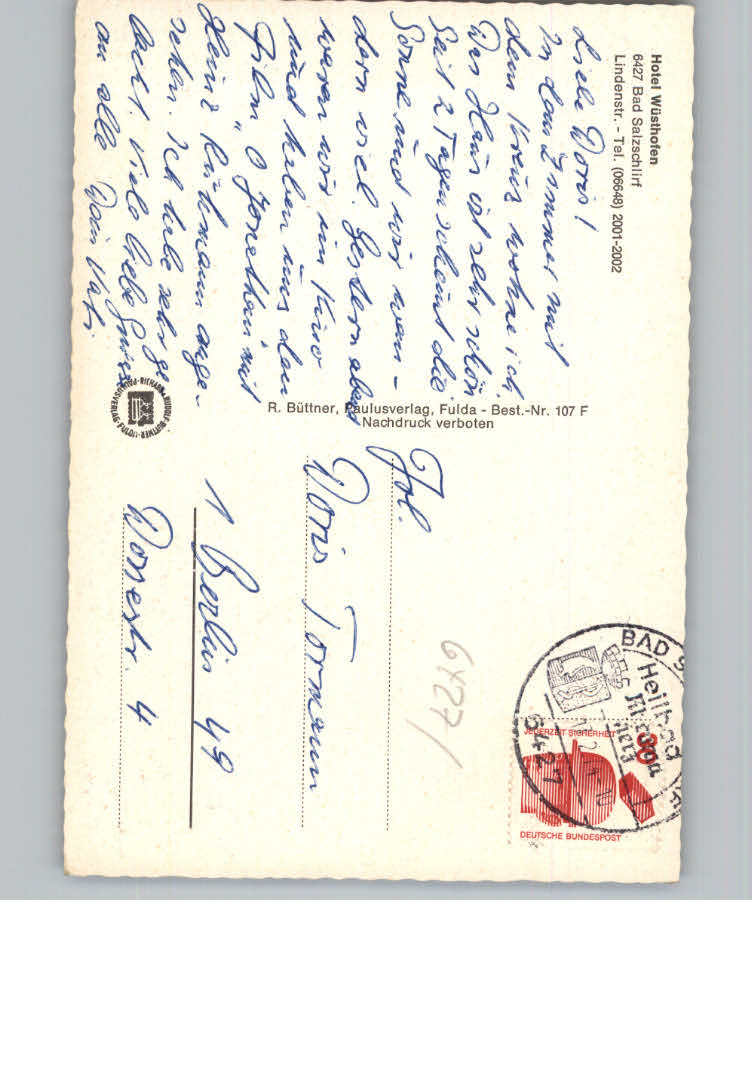 Hotel Wüsthofen
6427 Bad Salzschlirf
Lindenstr. - Tel. (06648) 2001-2002
Liebe Doris!
In dem Zimmer mit
dem Kreuz wohne ich.
Das Haus ist sehr schön
Seit 2 Tagen scheint die
Sonne und wir wan-
dern viel. Gestern abend
waren wir im Kino
und haben uns den
Film "O Jonathan" mit
Heinz Rühmann ange-
sehen. Ich habe sehr ge
lacht. Viele liebe Grüsse
an alle Dein Vati
R. Büttner, Paulusverlag, Fulda - Best.-Nr. 107 F
Nachdruck verboten
Frl.
Doris Tormann
1 Berlin 49
Dossestr. 4
6427/
BAD S
Heilbad
6427
30
JEDERZEIT SICHERHEIT
DEUTSCHE BUNDESPOST